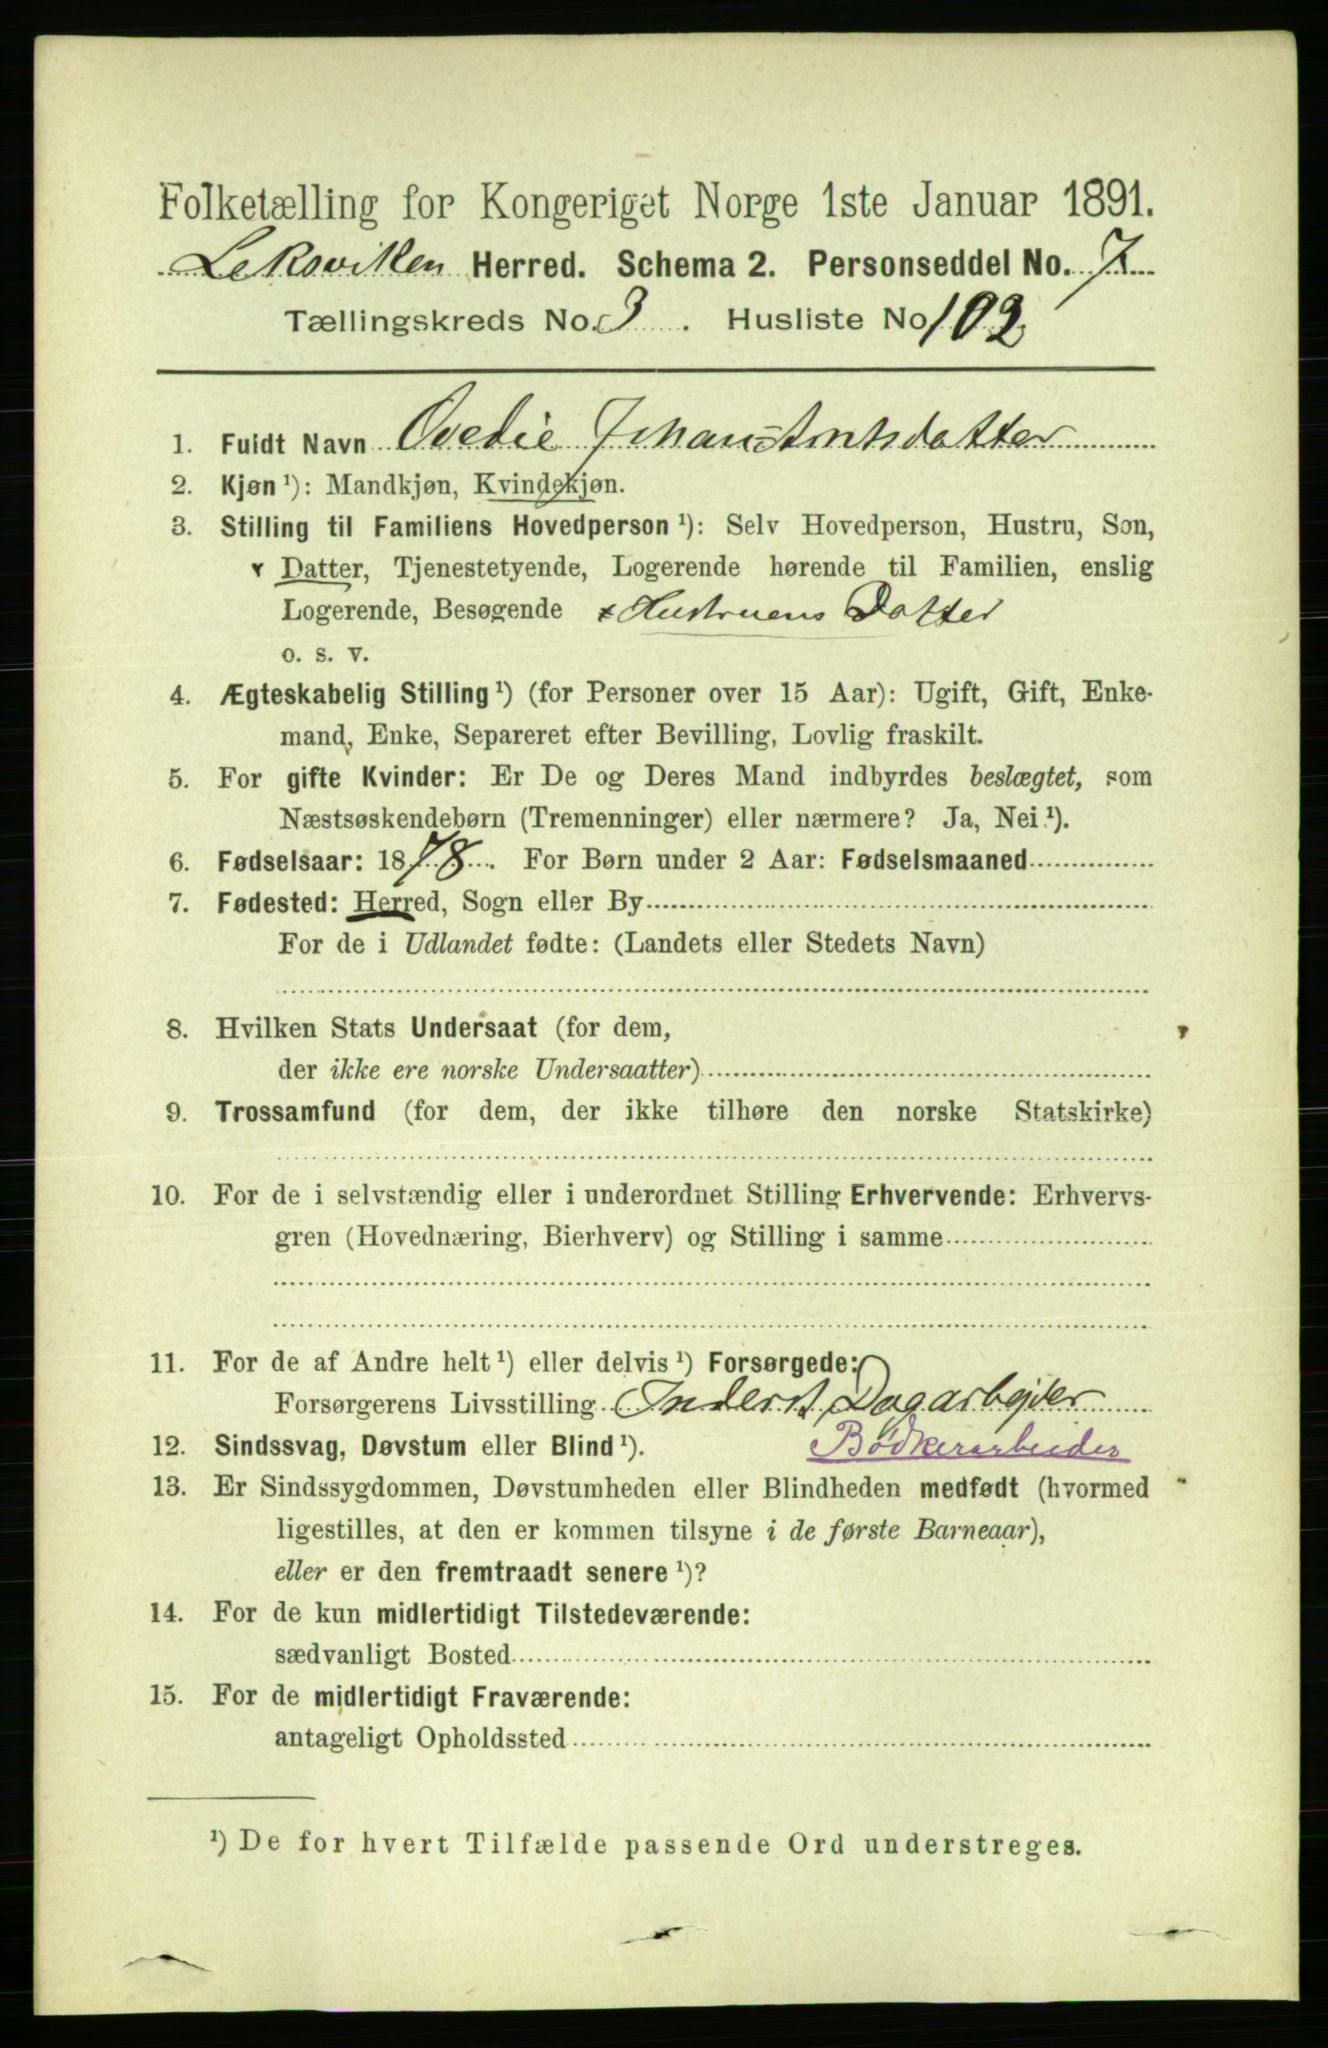 Folketælling for Kongeriget Norge 1ste Januar 1891.
Leksviken Herred. Schema 2. Personseddel No. 7
Tællingskreds No. 3. Husliste No 102
1. Fuldt Navn Ovedie Johan=Arntsdatter
2. Kjøn ¹): Mandkjøn, Kvindekjøn.
3. Stilling til Familiens Hovedperson ¹): Selv Hovedperson, Hustru, Søn,
× Datter, Tjenestetyende, Logerende hørende til Familien, enslig
Logerende, Besøgende × Hustruens Datter
o. s. v.
4. Ægteskabelig Stilling ¹) (for Personer over 15 Aar): Ugift, Gift, Enke-
mand, Enke, Separeret efter Bevilling, Lovlig fraskilt.
5. For gifte Kvinder: Er De og Deres Mand indbyrdes beslægtet, som
Næstsøskendebørn (Tremenninger) eller nærmere? Ja, Nei ¹).
6. Fødselsaar: 1878. For Børn under 2 Aar: Fødselsmaaned
7. Fødested: Herred, Sogn eller By
For de i Udlandet fødte: (Landets eller Stedets Navn)
8. Hvilken Stats Undersaat (for dem,
der ikke ere norske Undersaatter)
9. Trossamfund (for dem, der ikke tilhøre den norske Statskirke)
10. For de i selvstændig eller i underordnet Stilling Erhvervende: Erhvervs-
gren (Hovednæring, Bierhverv) og Stilling i samme
11. For de af Andre helt ¹) eller delvis ¹) Forsørgede:
Forsørgerens Livsstilling Inderst, Dagarbejder
12. Sindssvag, Døvstum eller Blind ¹). Bødkerarbeider
13. Er Sindssygdommen, Døvstumheden eller Blindheden medfødt (hvormed
ligestilles, at den er kommen tilsyne i de første Barneaar),
eller er den fremtraadt senere ¹)?
14. For de kun midlertidigt Tilstedeværende:
sædvanligt Bosted
15. For de midlertidigt Fraværende:
antageligt Opholdssted
¹) De for hvert Tilfælde passende Ord understreges.